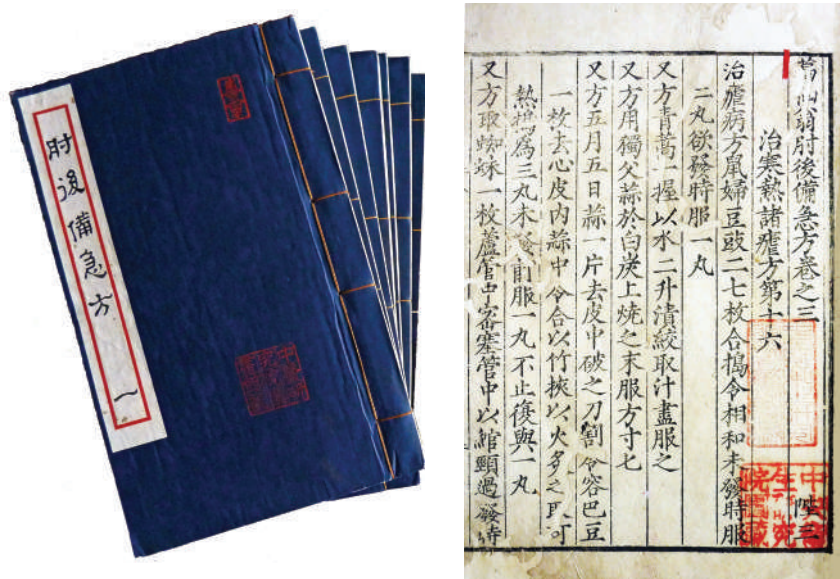 肘後備急方
一
葛仙翁肘後備急方卷之三
陛三
治寒熱諸瘧方第十六
治瘧病方鼠婦豆豉二七枚合搗令相和未發時服
二丸欲發時服一丸
又方青蒿一握以水二升漬絞取汁盡服之
又方用獨父蒜於白炭上燒之末服方寸匕
又方五月五日蒜一片去皮中破之刀割令容巴豆
一枚去心皮内蒜中令合以竹挾以火炙之取可
熱搗爲三丸未發前服一丸不止復與一丸
又方取蜘蛛一枚蘆管中密塞管中以綰頸過發時